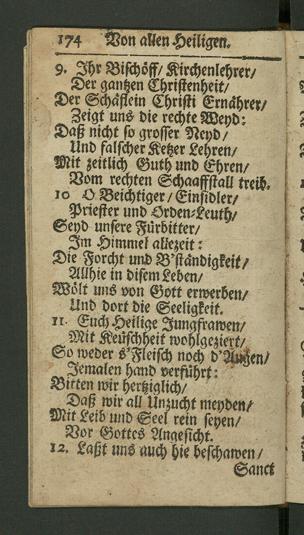 174 Von allen Heiligen.
9. Ihr Bischöff/ Kirchenlehrer/
Der gantzen Christenheit/
Der Schäflein Christi Ernährer/
Zeigt uns die rechte Weyd:
Daß nicht so grosser Neyd/
Und falscher Ketzer Lehren/
Mit zeitlich Guth und Ehren/
Vom rechten Schaaffstall treib.
10 O Beichtiger/ Einsidler/
Priester und Orden-Leuth/
Seyd unsere Fürbitter/
Im Himmel allezeit:
Die Forcht und B'ständigkeit/
Allhie in disem Leben/
Wölt uns von Gott erwerben/
Und dort die Seeligkeit.
11. Euch Heilige Jungfrawen/
Mit Keüschheit wohlgeziert/
So weder s'Fleisch noch d'Augen/
Jemalen hand verführt:
Bitten wir hertziglich/
Daß wir all Unzucht meyden/
Mit Leib und Seel rein seyen/
Vor Gottes Angesicht.
12. Laßt uns auch hie beschawen/
Sanct